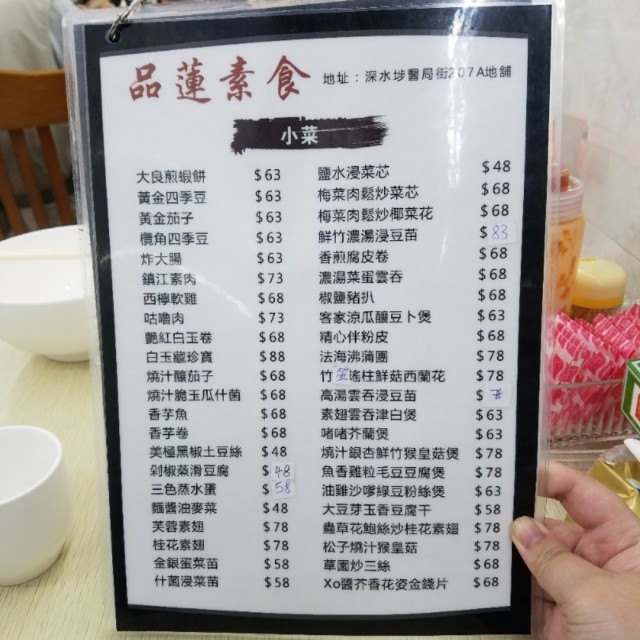 品蓮素食
地址：深水埗醫局街207A地舖
小菜
大良煎蝦餅 $63
黃金四季豆 $63
黃金茄子 $63
欖角四季豆 $63
炸大腸 $63
鎮江素肉 $73
西檸軟雞 $68
咕嚕肉 $73
艷紅白玉卷 $68
白玉藏珍寶 $88
燒汁釀茄子 $68
燒汁脆玉瓜什菌 $68
香芋魚 $68
香芋卷 $68
美極黑椒土豆絲 $48
剁椒蒸滑豆腐 $48
三色蒸水蛋 $58
麵醬油麥菜 $48
芙蓉素翅 $78
桂花素翅 $78
金銀蛋菜苗 $58
什菌浸菜苗 $58
鹽水浸菜芯 $48
梅菜肉鬆炒菜芯 $68
梅菜肉鬆炒椰菜花 $68
鮮竹濃湯浸豆苗 $83
香煎腐皮卷 $68
濃湯菜蛋雲吞 $68
椒鹽豬扒 $68
客家涼瓜釀豆卜煲 $63
精心伴粉皮 $68
法海沸蒲團 $78
竹笙瑤柱鮮菇西蘭花 $78
高湯雲吞浸豆苗 $
素翅雲吞津白煲 $63
啫啫芥蘭煲 $63
燒汁銀杏鮮竹猴皇菇煲 $78
魚香雞粒毛豆豆腐煲 $78
油雞沙嗲綠豆粉絲煲 $63
大豆芽玉香豆腐干 $58
蟲草花鮑絲炒桂花素翅 $78
松子燒汁猴皇菇 $78
草園炒三絲 $68
Xo醬芥香花姿金錢片 $68